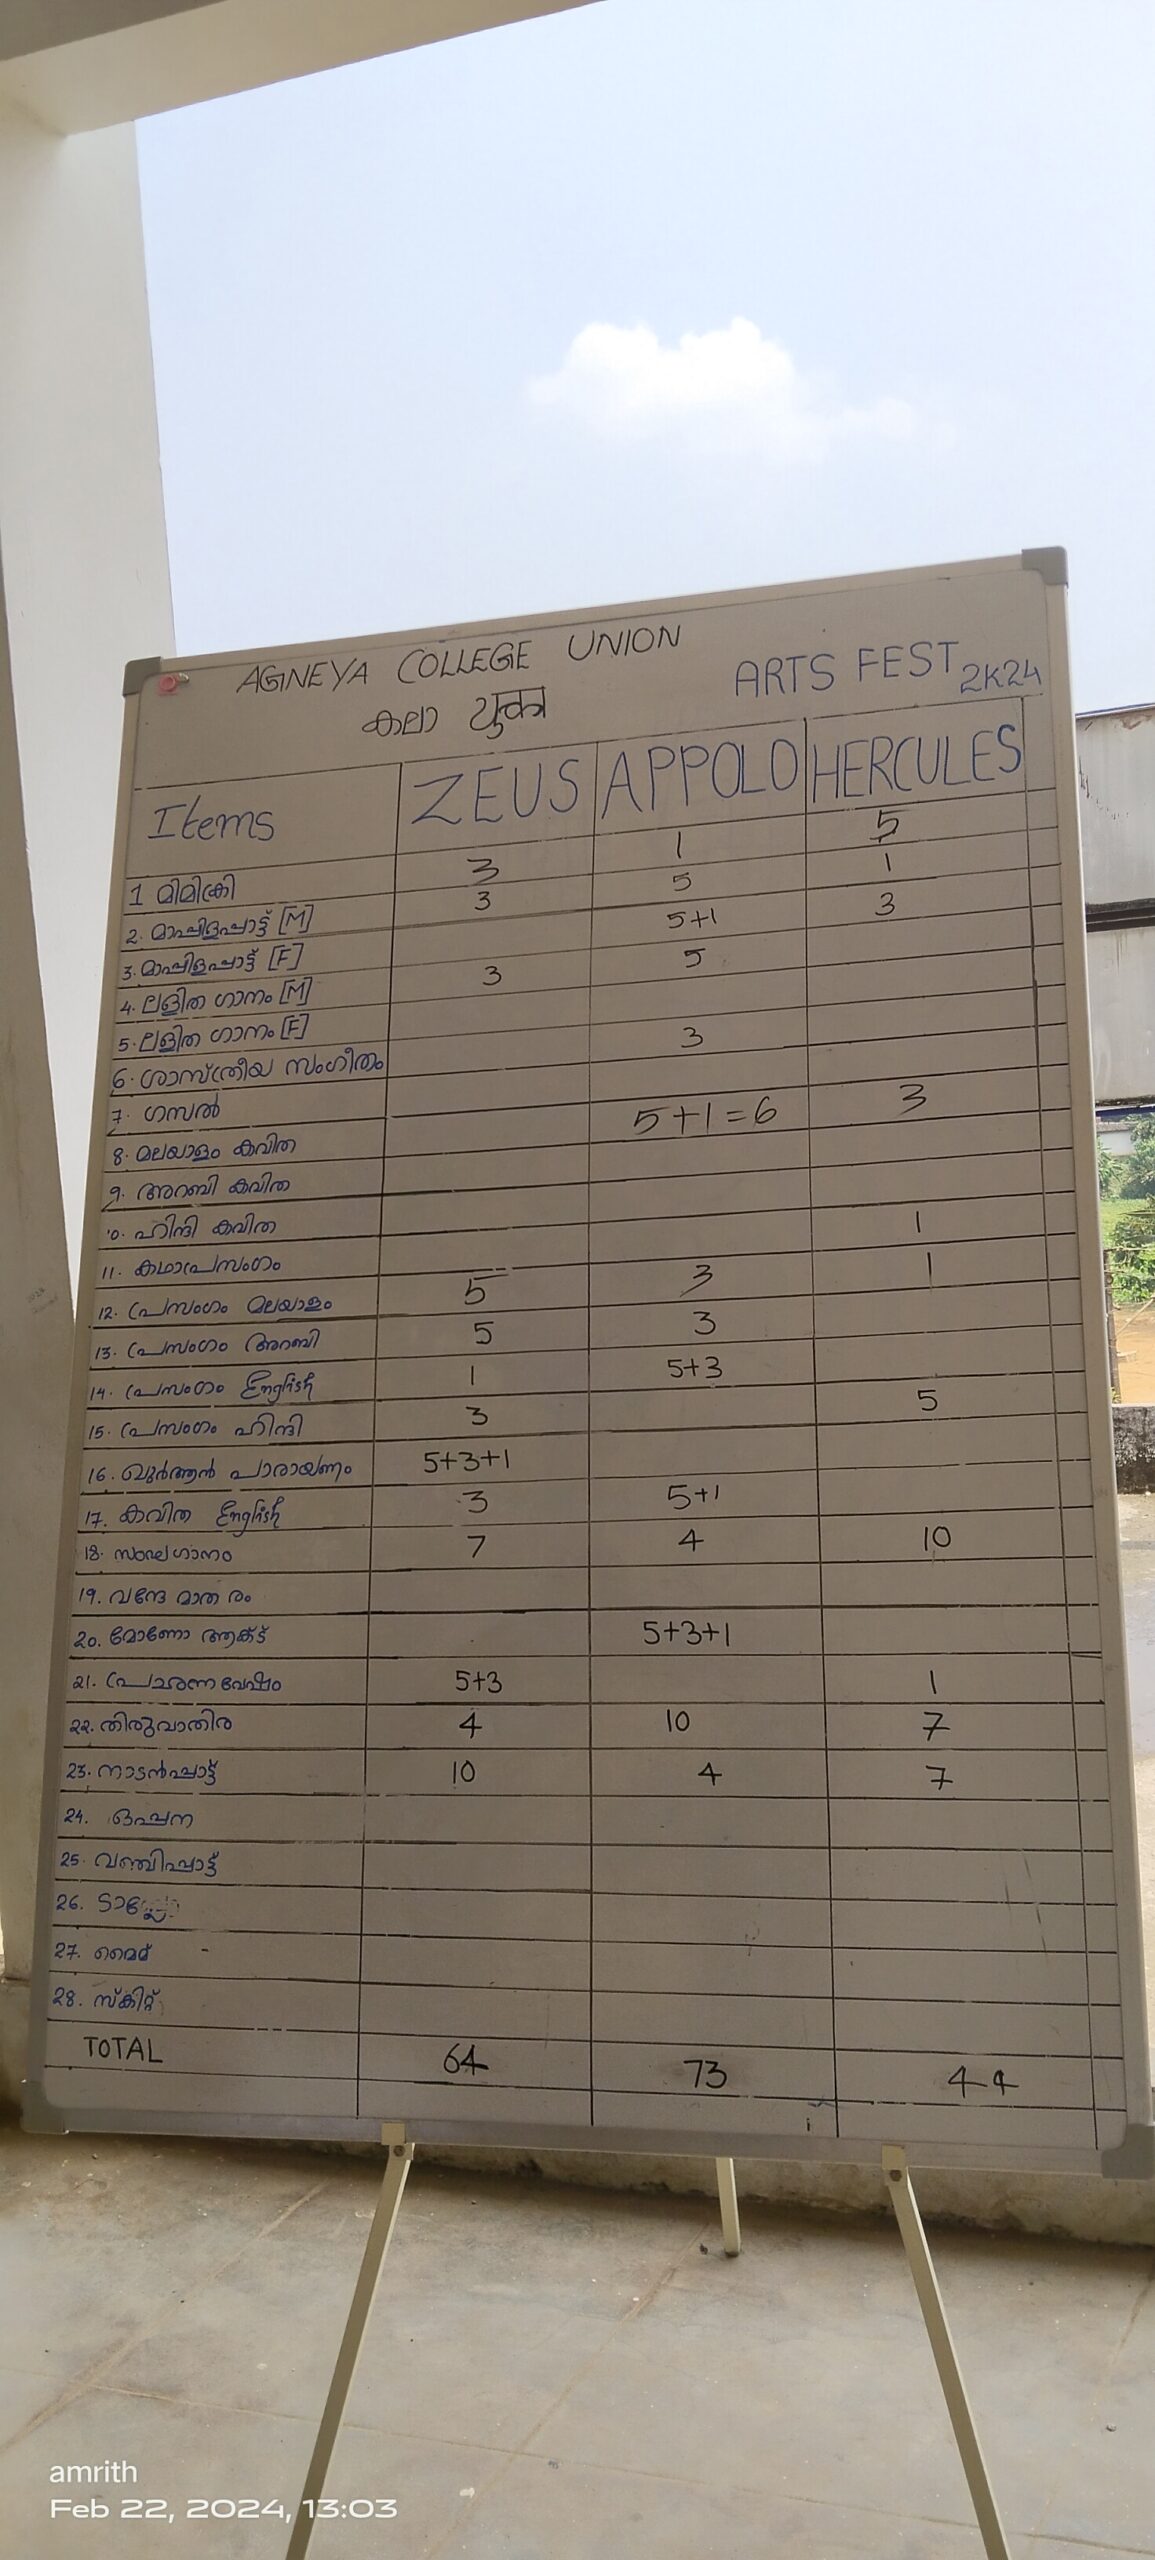 AGNEYA COLLEGE UNION
ARTS FEST 2K24
കലാ
Items ZEUS APPOLO HERCULES
1 മിമിക്രി 3 1 5
2. മാപ്പിളപ്പാട്ട് [M] 3 5 1
3. മാപ്പിളപ്പാട്ട് [F] 5+1 3
4. ലളിത ഗാനം [M] 3 5
5. ലളിത ഗാനം [F]
6. ശാസ്ത്രീയ സംഗീതം 3
7. ഗസൽ
8. മലയാളം കവിത 5+1=6 3
9. അറബി കവിത
10. ഹിന്ദി കവിത
11. കഥാപ്രസംഗം 1
12. പ്രസംഗം മലയാളം 5 3 1
13. പ്രസംഗം അറബി 5 3
14. പ്രസംഗം English 1 5+3
15. പ്രസംഗം ഹിന്ദി 3 5
16. ഖുർആൻ പാരായണം 5+3+1
17. കവിത English 3 5+1
18. സംഘഗാനം 7 4 10
19. വന്ദേ മാതരം
20. മോണോ ആക്ട് 5+3+1
21. പ്രച്ഛന്നവേഷം 5+3 1
22. തിരുവാതിര 4 10 7
23. നാടൻപ്പാട്ട് 10 4 7
24. ഒപ്പന
25. വഞ്ചിപ്പാട്ട്
26.
27. മൈമ്
28. സ്കിറ്റ്
TOTAL 64 73 44
amrith
Feb 22, 2024, 13:03